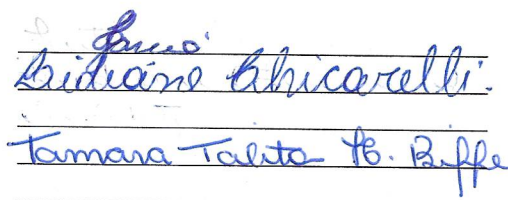 Lidiane Chicarelli.
Tamara Talita H. Biffe